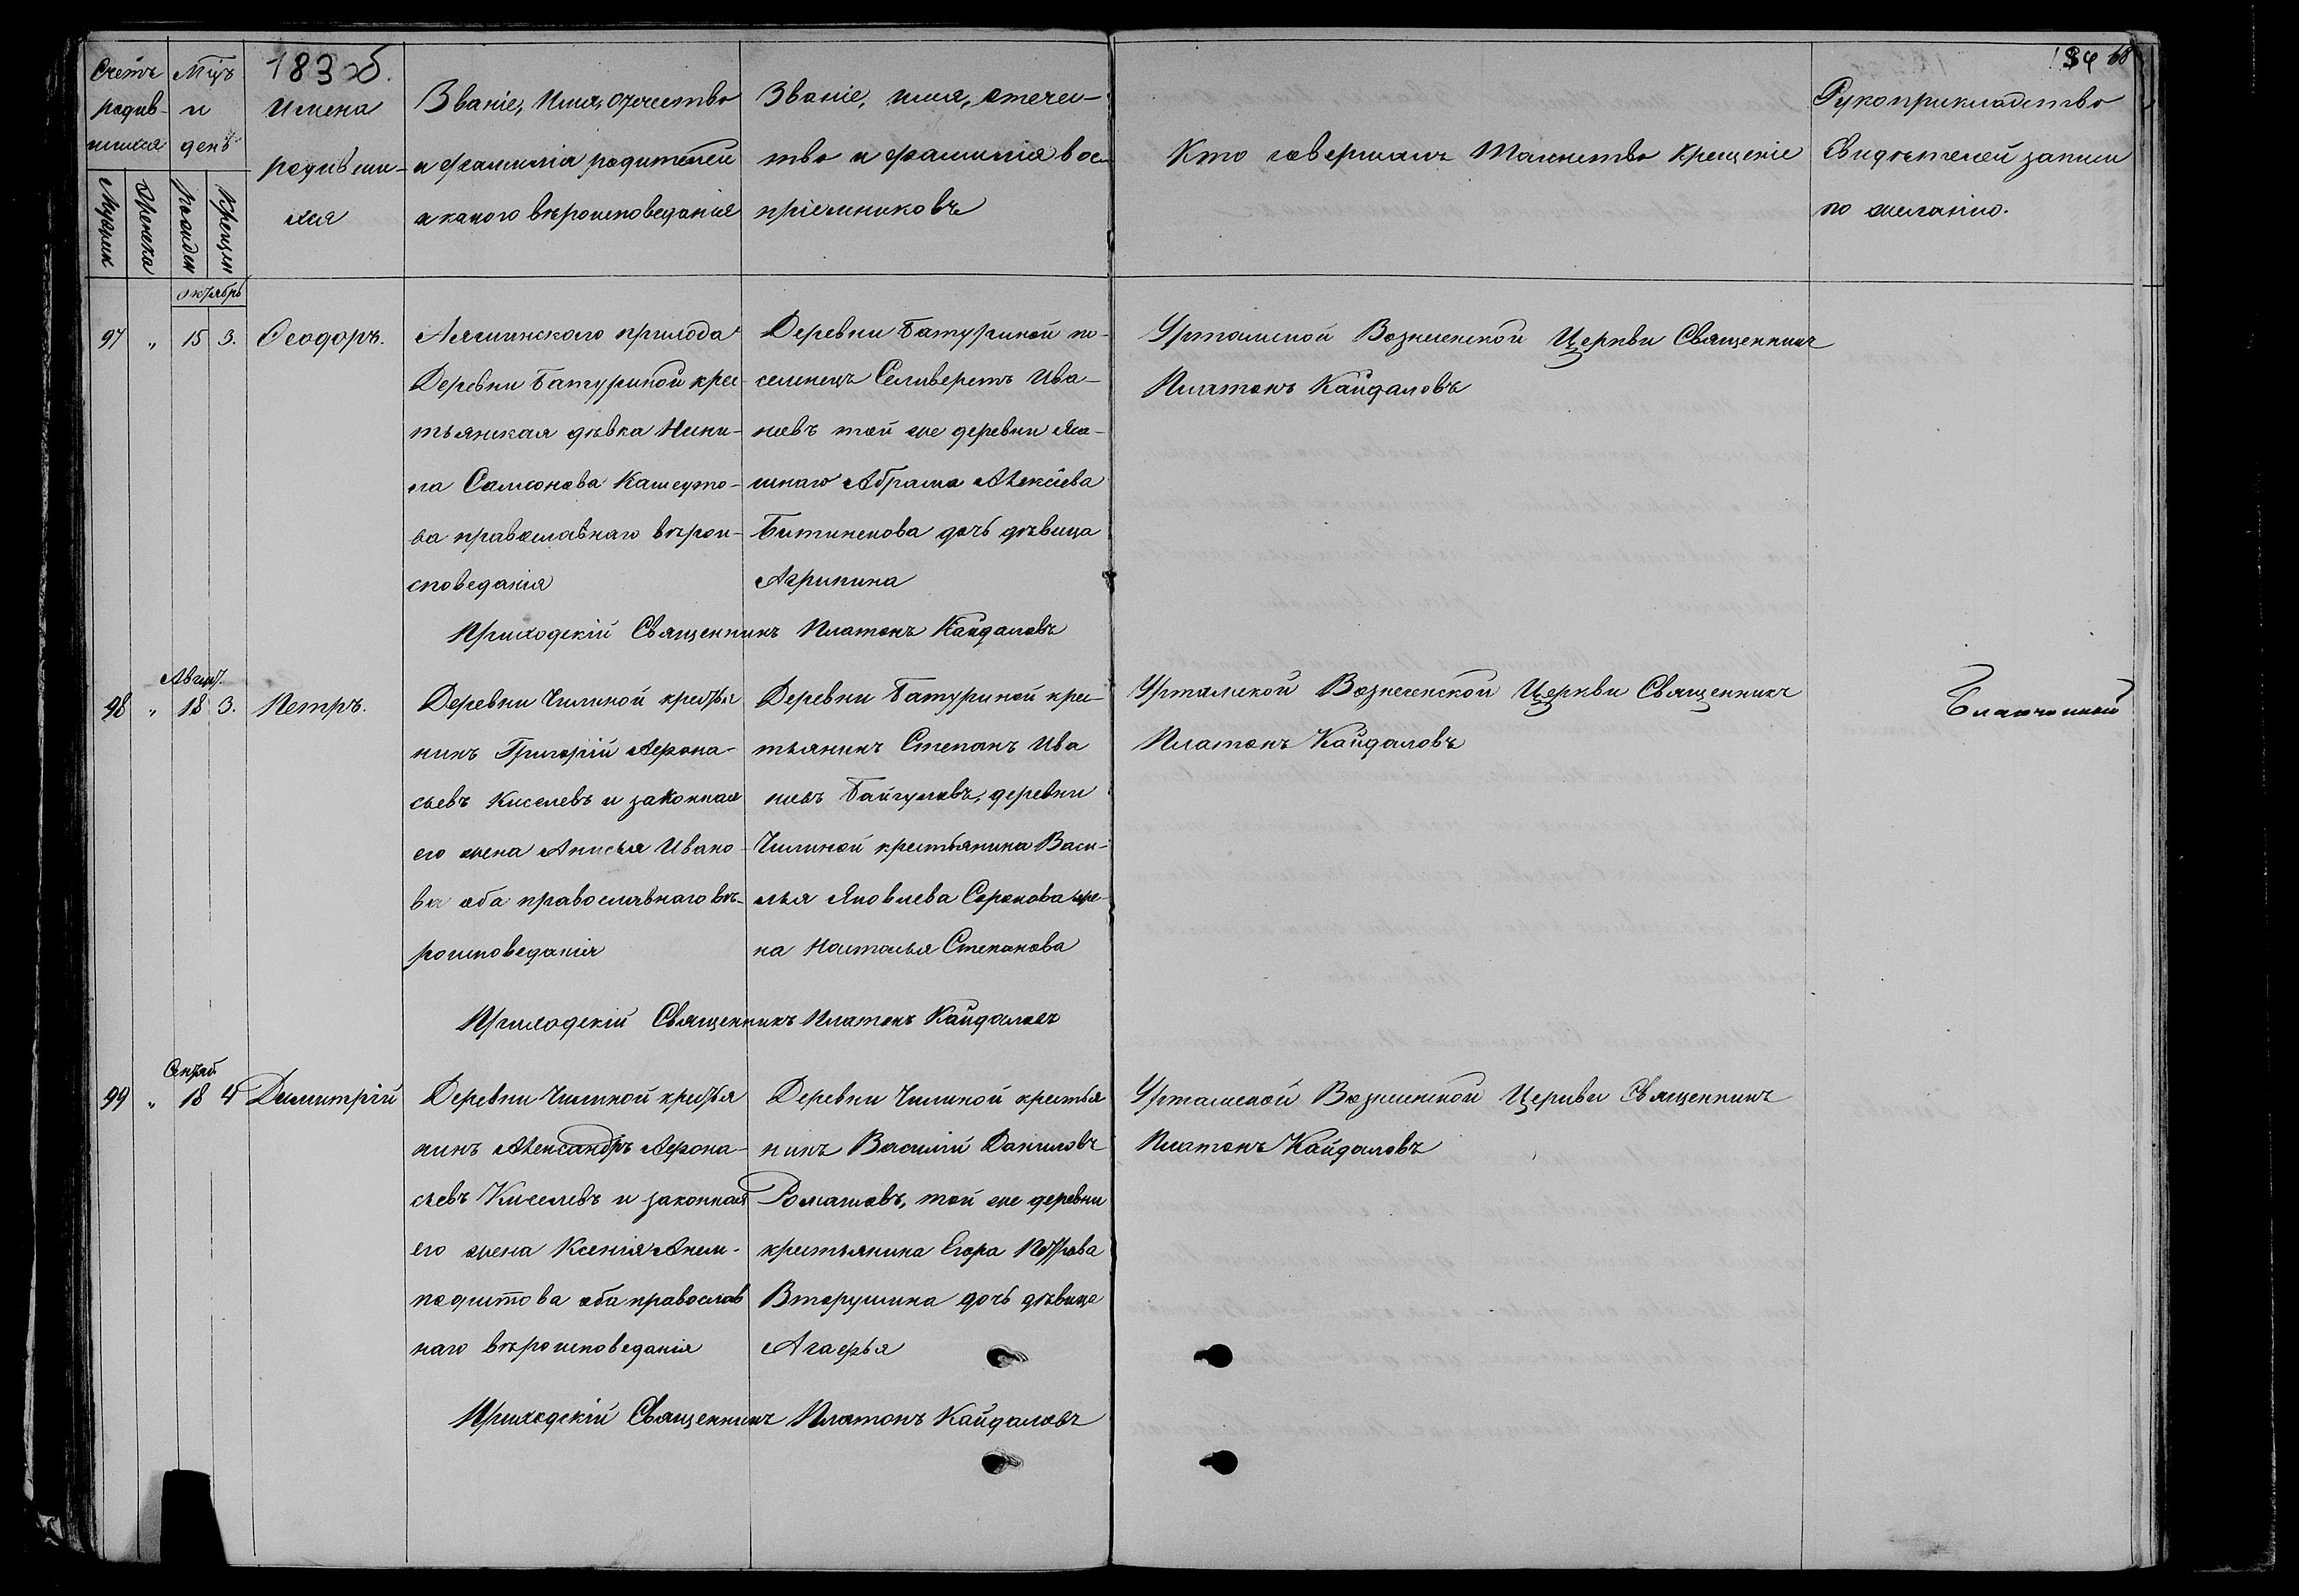 183 об.
Счетъ
родив-
шихся
Мѣц
и
день
Имена
родивши-
хся
Званіе, Имя, отчество
и фамилія родителей
и какого вѣроисповеданія
Званіе, имя, отечес-
тво и фамилія вос-
пріемниковъ
Кто совершалъ Таинство крещеніе
Рукоприкладство
Свидѣтелей записи
по желанію.
Рожден
Крещен
октябрь
97 " 15 3. Ѳеодоръ.
прихода
Деревни Батуриной крес-
тьянская дѣвка Нени-
ла Самсонова
ва православнаго вѣрои-
споведанія
Деревни Батуриной по-
селенецъ Селиверстъ Ива-
новъ той же деревни Яса-
шнаго Абрама Алексѣева
дочь дѣвица
Агрипина
Уртамской Вознесенской Церкви Священникъ
Платонъ Кайдаловъ
Приходскій Священникъ Платонъ Кайдаловъ
Август.
98 " 18 3. Петръ.
Деревни Чилиной крестья
нинъ Григорій Афона-
сьевъ Киселевъ и законная
его жена Анисья Ивано-
ва оба православнаго вѣ-
роисповеданія
Деревни Батуриной крес-
тьянинъ Степанъ Ива
новъ Байгуловъ, деревни
Чилиной крестьянина Васи-
лья Яковлева Сорокова же-
на Наталья Степанова
Уртамской Вознесенской Церкви Священникъ
Платонъ Кайдаловъ
Приходскій Священникъ Платонъ Кайдаловъ
Сентяб
99 " 18 4 Димитрій
Деревни Чилиной крестья
нинъ Александръ Афона-
сьевъ Киселевъ и законная
его жена Ксенія Анем-
подистова оба православ
наго вѣроисповеданія
Деревни Чилиной крестья
нинъ Василій Даниловъ
Ромашовъ, той же деревни
крестьянина Егора Петрова
Вторушина дочь дѣвица
Агафья
Уртамской Вознесенской Церкви Священникъ
Платонъ Кайдаловъ
Приходскій Священникъ Платонъ Кайдаловъ